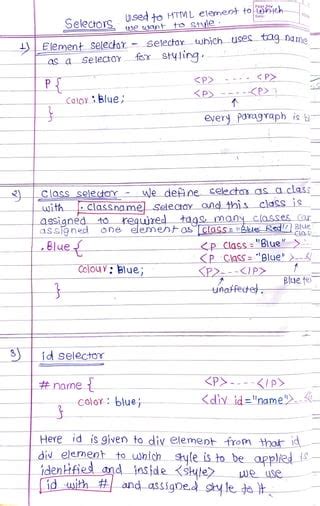 Selectors used to HTML element to which
we want to style.
1) Element selector - selector which uses tag name
as a selector for styling.
P { <P> ---- <P>
color : Blue; <P> ----- <P>
}
every paragraph is
2) Class selector - We define selector as a class
with .classname selector and this class is
assigned to required tags many classes can
assigned one element as class="Blue Red" Blue
.Blue { <P class="Blue" >
colour : Blue; <P class="Blue" >
} <P>---</P> Blue
unaffected.
3) id selector
# name { <P>----</P>
color : blue; <div id="name">
}
Here id is given to div element from that id
div element to which style is to be applied is
identified and inside <style> we use
id with # and assigned style to it.